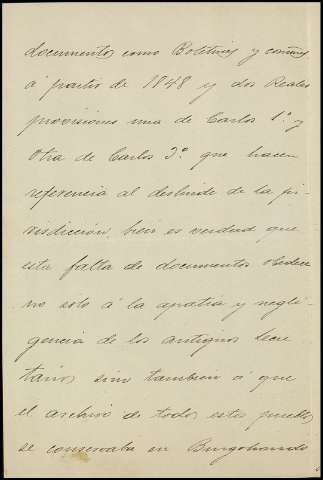 documentos como Boletines y
á partir de 1848 y dos Reales
provisiones una de Carlos 1º y
otra de Carlos 3º que hacen
referencia al deslinde de la ju-
risdicción, bien es verdad que
esta falta de documentos obedece
no solo á la apatia y negli-
gencia de los antiguos Secre
tarios sino tambien á que
el archivo de todos estos pueblos
se conservaba en Burgohondo